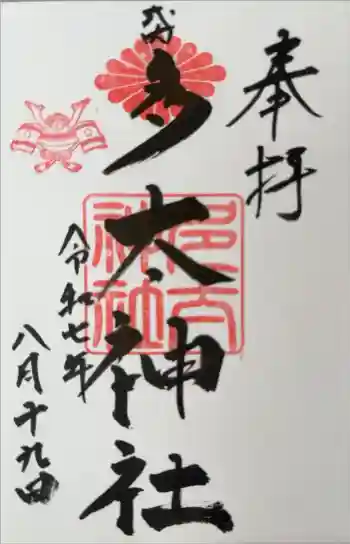 奉拝
多太神社
令和七年
八月十九日
多太
神社